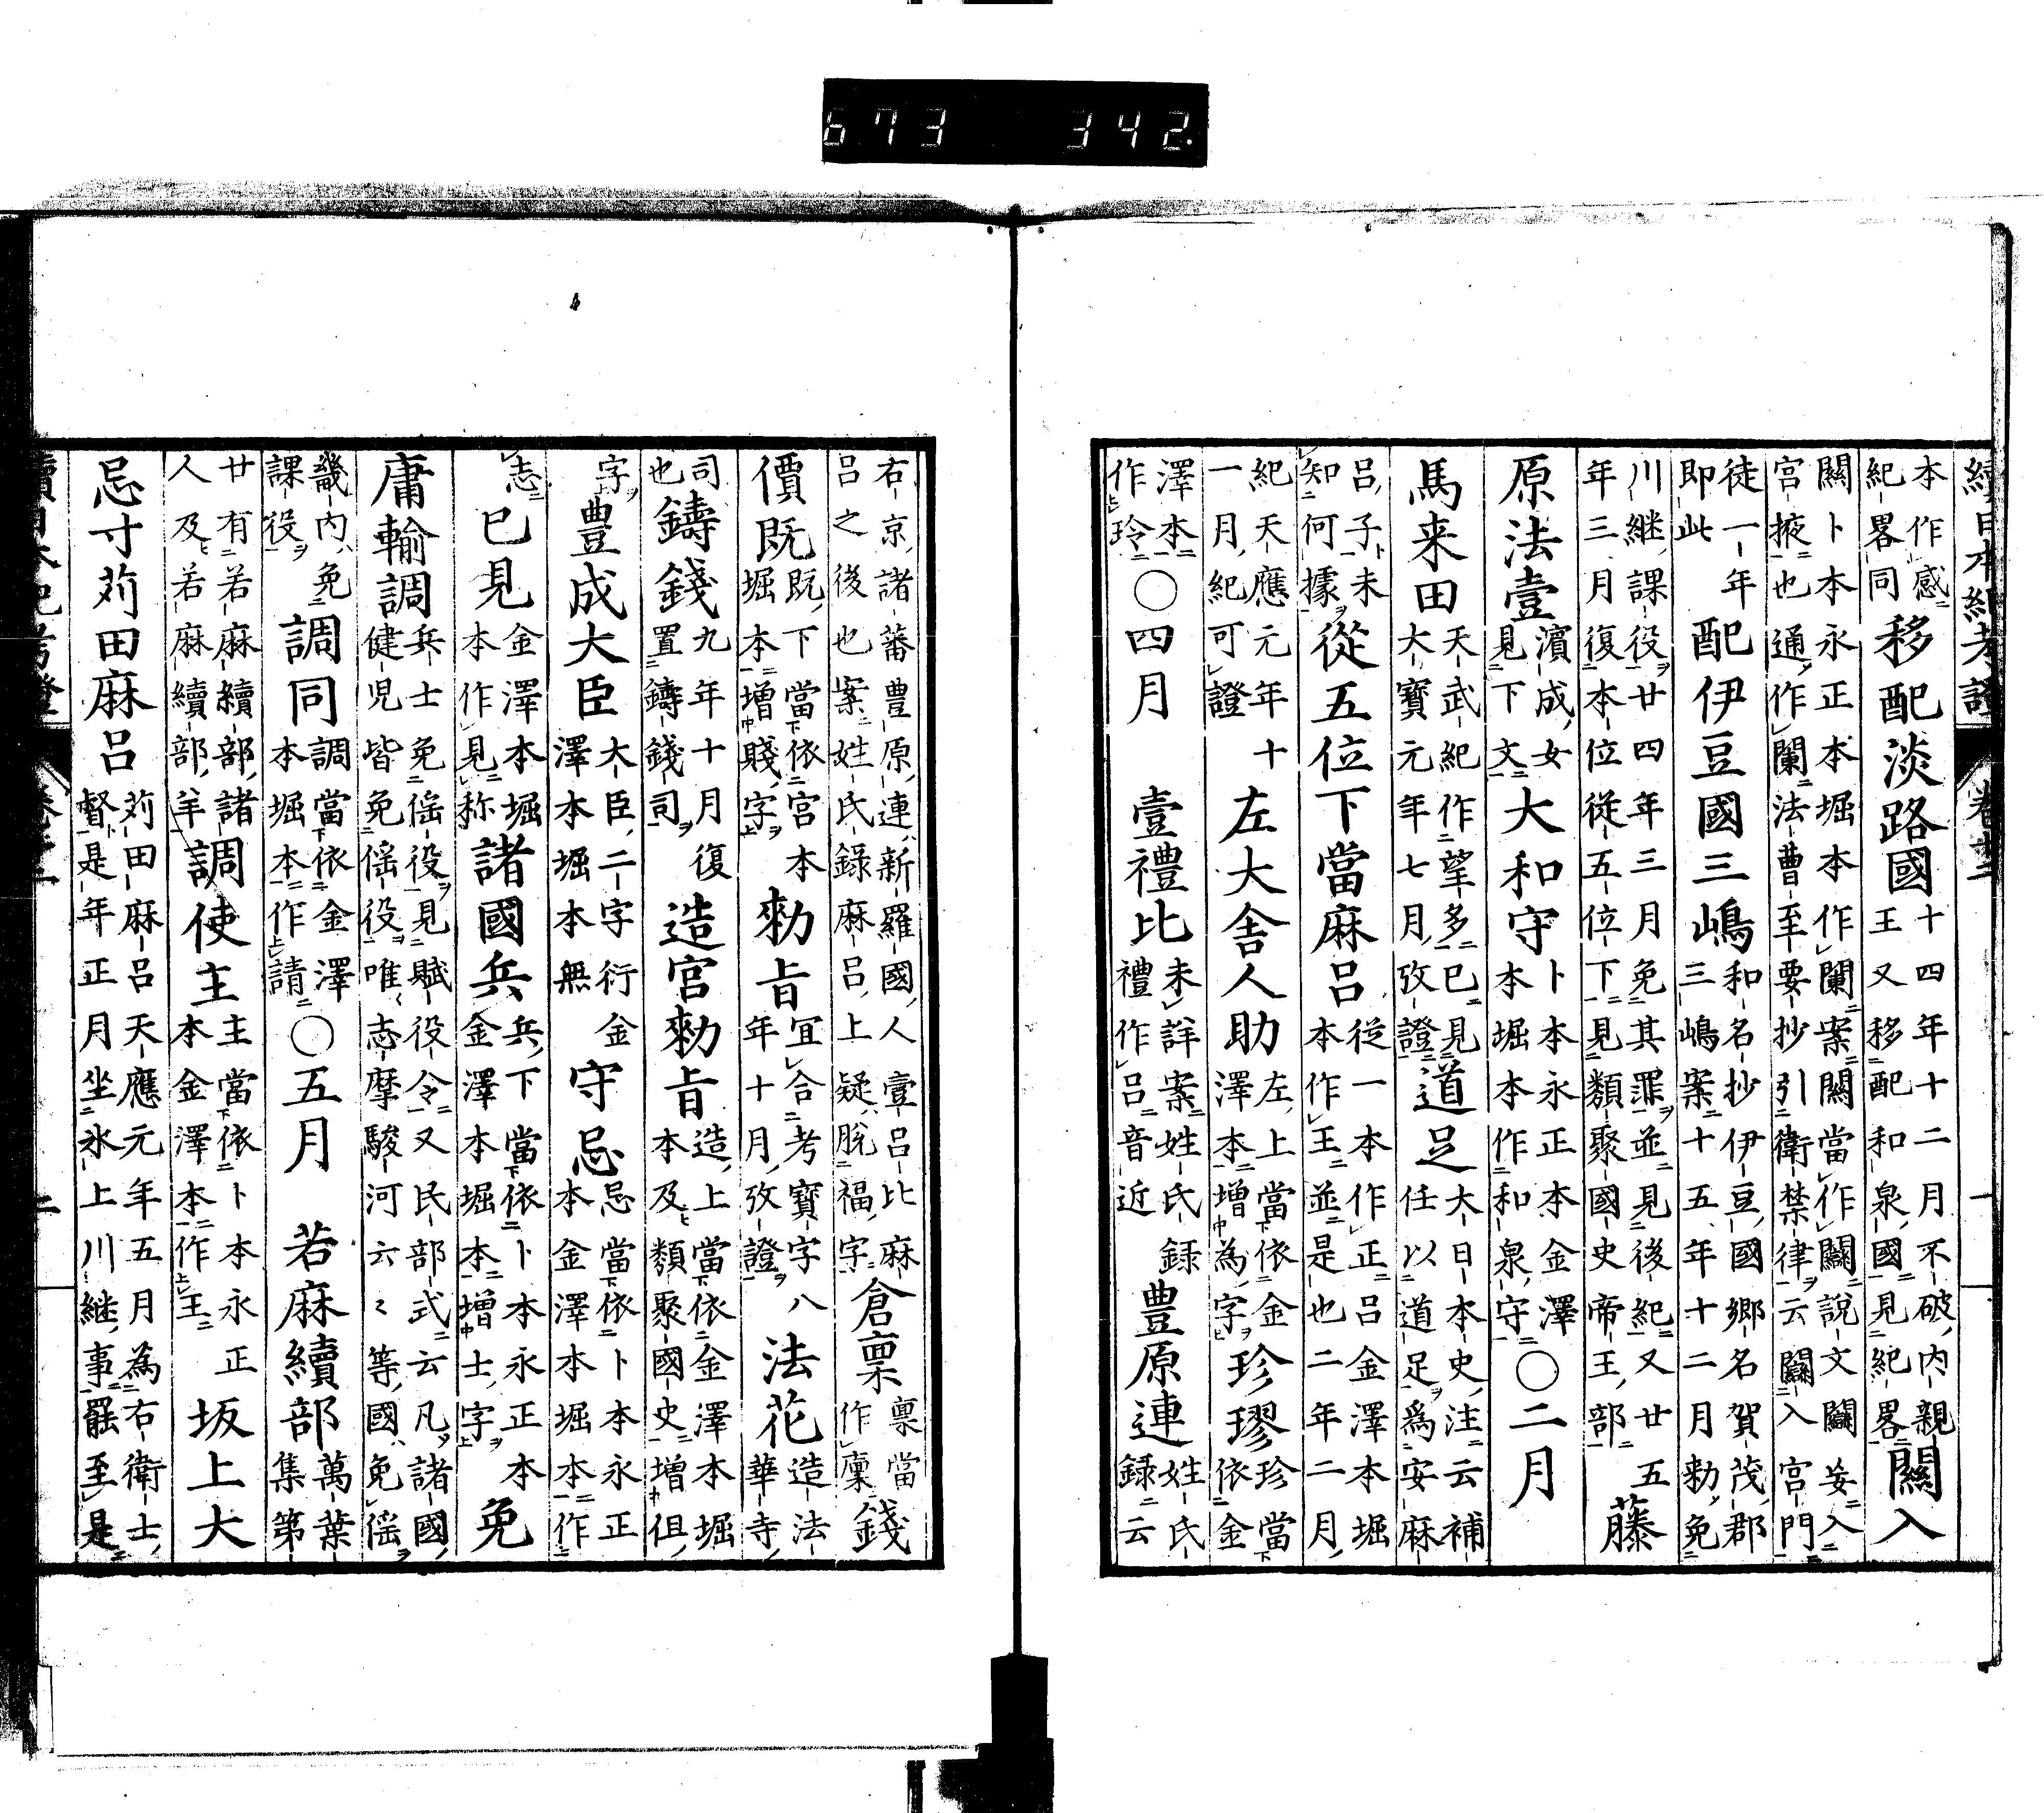 673 342.
續日本紀考證 卷十二 一
本作感紀畧同移配淡路國十四年十二月不破內親王又移配和泉國見紀畧關入
關卜本永正本堀本作闌案關當作闌說文闌妄入宮掖也通作闌法曹至要抄引衛禁律云闌入宮門
徒一年即此配伊豆國三嶋和名抄伊豆國鄉名賀茂郡三嶋案十五年十二月勅免
川繼課役廿四年三月免其罪並見後紀又廿五年三月復本位從五位下見類聚國史帝王部藤
原法壹濱成女見下文大和守卜本永正本金澤本堀本作和泉守〇二月
馬来田天武紀作望多已見大寶元年七月攷證道足大日本史注云補任以道足為安麻
呂子未知何據從五位下當麻呂從一本作正呂金澤本堀本作王並是也二年二月
紀天應元年十一月紀可證左大舍人助左上當依金澤本增為字珍璆珍當依金
澤本作玲〇四月 壹禮比未詳案姓氏錄禮作呂音近豊原連姓氏錄云
右京諸蕃豊原連新羅國人壹呂比麻呂之後也案姓氏錄麻呂上疑脫福字倉禀禀當作廩錢
價既既下當依宮本堀本增賤字勅旨宜合考寶字八年十月攷證法花造法華寺
司也鑄錢九年十月復置鑄錢司造宮勅旨造上當依金澤本堀本及類聚國史增但
字豊成大臣大臣二字衍金澤本堀本無守忌忌當依卜本永正本金澤本堀本作
志已見金澤本堀本作見称諸國兵兵下當依卜本永正本金澤本堀本增士字免
庸輸調兵士免傜役見賦役令又民部式云凡諸國健児皆免傜役唯志摩駿河云々等國免傜
畿內免課役調同調當依金澤本堀本作請〇五月 若麻續部萬葉集第
廿有若麻續部諸人及若麻續部羊調使主主當依卜本永正本金澤本作王坂上大
忌寸苅田麻呂苅田麻呂天應元年五月為右衛士督是年正月坐氷上川継事罷至是
續日本紀考證 卷十二 二